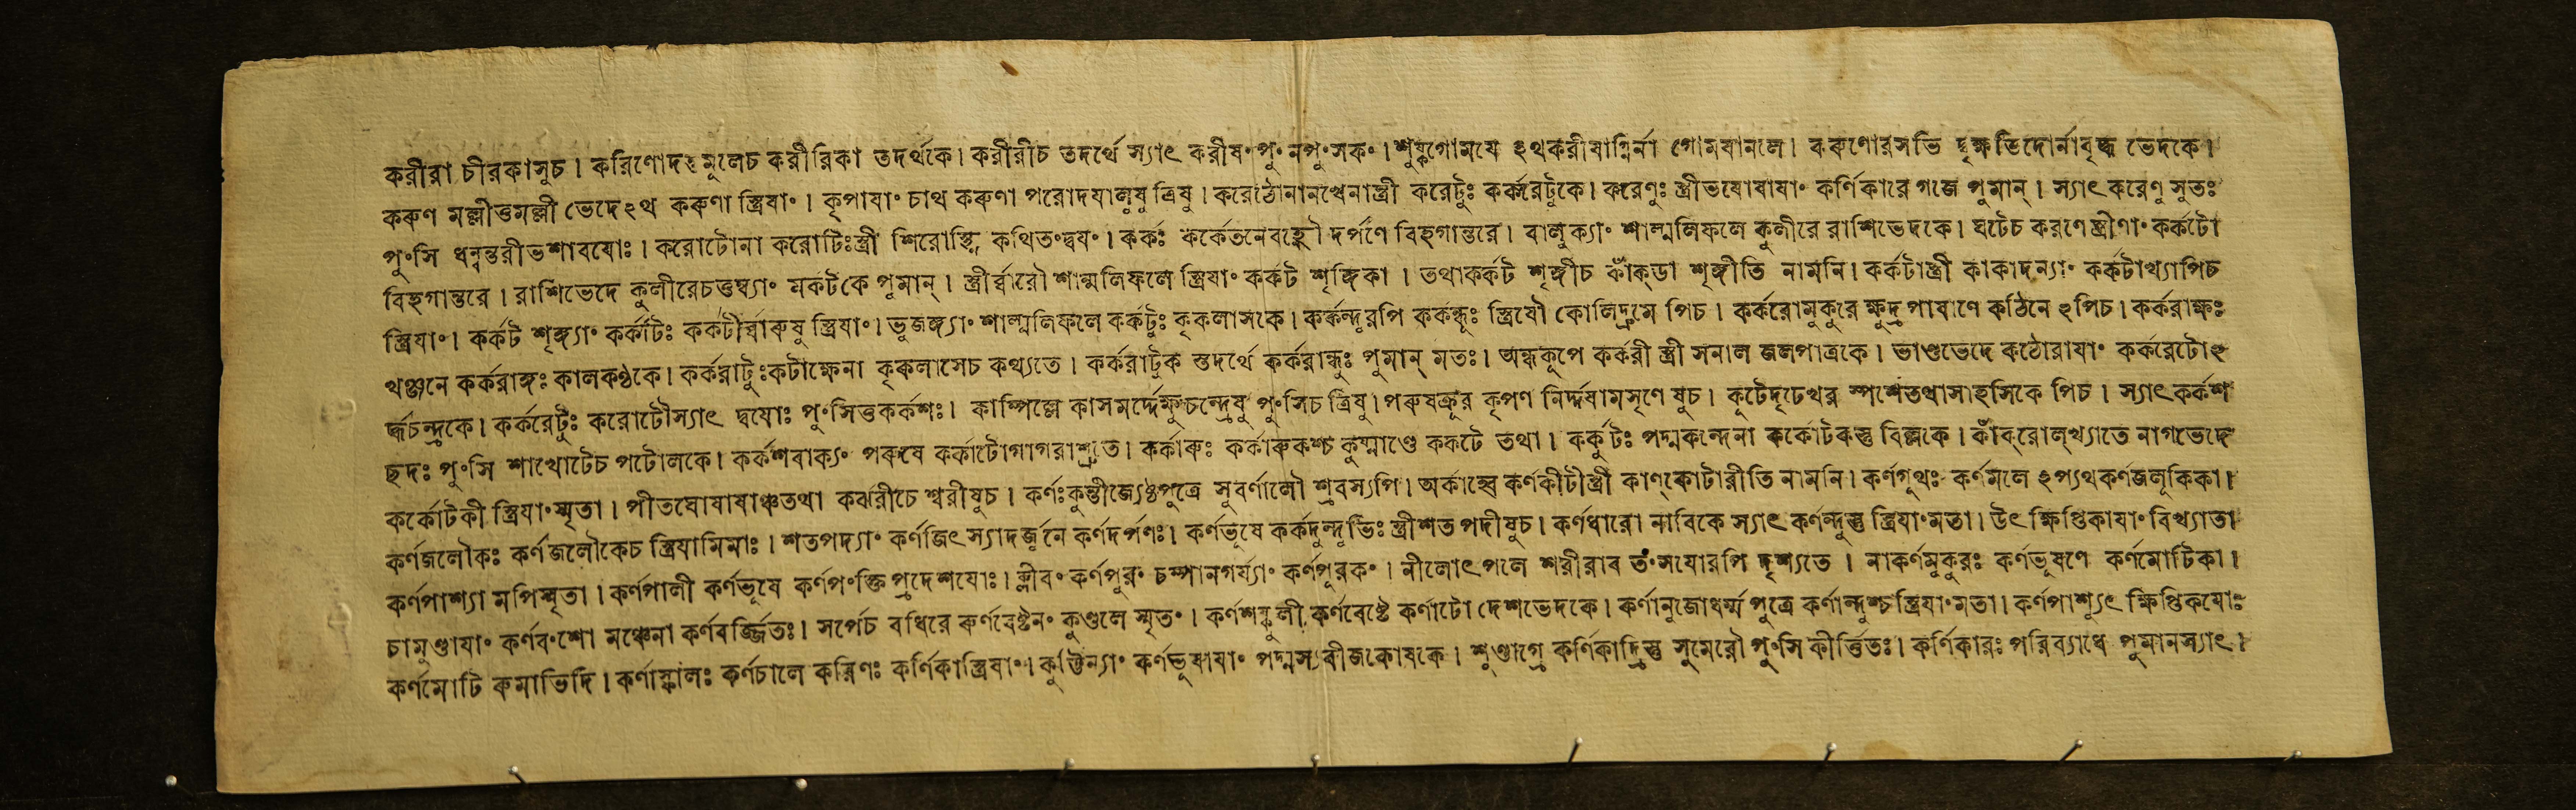 করীরা চীরকাসুচ। করিণোদন্তমূলেচ করীরিকা তদর্থকে। করীরীচ তদর্থে স্যাৎ করীষং পুংনপুংসকং। শুষ্কগোময়ে ঽথকরীষাগ্নির্না গোময়ানলে। করুণোরসভি দ্বৃক্ষভিদোর্নাবৃদ্ধ ভেদকে।
করুণ মল্লীতুমল্লী ভেদেঽথ করুণা স্ত্রিয়াং। কৃপায়াং চাথ করুণা পরোদয়ালুষু ত্রিষু। করেঠোনানখেনাস্ত্রী করেটুঃ কর্করেটুকে। করেণুঃ স্ত্রীভযোষায়াং কর্ণিকারে গজে পুমান্। স্যাৎ করেণু সুতঃ
পুংসি ধন্বন্তরীভশাবয়োঃ। করোটোনা করোটিঃস্ত্রী শিরোস্থ্নি কথিতংদ্বয়ং। কর্কঃ কর্কেতনেবহ্নৌ দর্পণে বিহগান্তরে। বালুক্যাং শাল্মলিফলে কুলীরে রাশিভেদকে। ঘটেচ করণেস্ত্রীণাং কর্কটো
বিহগান্তরে। রাশিভেদে কুলীরেচতুম্ব্যাং মর্কটকে পুমান্। স্ত্রীর্ব্বারৌ শাল্মলিফলে স্ত্রিয়াং কর্কট শৃঙ্গিকা। তথাকর্কট শৃঙ্গীচ কাঁক্ডা শৃঙ্গীতি নামনি। কর্কটাস্ত্রী কাকাদন্যাং কর্কটাখ্যাপিচ
স্ত্রিয়াং। কর্কট শৃঙ্গ্যাং কর্কাটিঃ কর্কটীর্ব্বারুষু স্ত্রিয়াং। ভুজঙ্গ্যাং শাল্মলিফলে কর্কটুঃ কৃকলাসকে। কর্কন্দূরপি কর্কন্ধূঃ স্ত্রিয়ৌ কোলিদ্রুমে পিচ। কর্করোমুকুরে ক্ষুদ্র পাষাণে কঠিনে ঽপিচ। কর্করাক্ষঃ
খঞ্জনে কর্করাঙ্গঃ কালকণ্ঠকে। কর্করাটুঃকটাক্ষেনা কৃকলাসেচ কথ্যতে। কর্করাটুক স্তদর্থে কর্করান্ধুঃ পুমান্ মতঃ। অন্ধকূপে কর্করী স্ত্রী সনাল জলপাত্রকে। ভাণ্ডভেদে কঠোরায়াং কর্করেটোঽ
র্দ্ধচন্দ্রকে। কর্করেটুঃ করোটৌস্যাৎ দ্বয়োঃ পুংসিতুকর্কশঃ। কাম্পিল্লে কাসমর্দ্দেক্ষুচন্দ্রেষু পুংসিচ ত্রিষু। পরুষক্রূর কৃপণ নির্দ্দয়ামসৃণে ষুচ। কূটেদৃঢেখর স্পর্শেতথাসাহসিকে পিচ। স্যাৎকর্কশ
ছদঃ পুংসি শাখোটেচ পটোলকে। কর্কশবাক্যং পরুষে কর্কাটোগাগরাশ্রুতে। কর্কারুঃ কর্কারুকশ্চ কুষ্মাণ্ডে কর্কটে তথা। কর্কুটঃ পদ্মকন্দেনা কর্কোটকস্তু বিল্লকে। কাঁক্রোল্খ্যাতে নাগভেদে
কর্কোটকী স্ত্রিয়াংস্মৃতা। পীতঘোষায়াঞ্চতথা কর্ঝরীচে শ্বরীষুচ। কর্ণঃকুন্তীজ্যেষ্ঠপুত্রে সুবর্ণালৌ শ্রবস্যপি। অর্কাহ্বে কর্ণকীটীস্ত্রী কাণ্কোটারীতি নামনি। কর্ণগূথঃ কর্ণমলে ঽপ্যথকর্ণজলূকিকা।
কর্ণজলৌকঃ কর্ণজলৌকেচ স্ত্রিয়ামিমাঃ। শতপদ্যাং কর্ণজিৎ স্যাদর্জুনে কর্ণদর্পণঃ। কর্ণভূষে কর্কদুন্দুভিঃ স্ত্রীশত পদীষুচ। কর্ণধারো নাবিকে স্যাৎ কর্ণন্দুস্তু স্ত্রিয়াংমতা। উৎ ক্ষিপ্তিকায়াং বিখ্যাতা
কর্ণপাশ্যা মপিস্মৃতা। কর্ণপালী কর্ণভূষে কর্ণপংক্তি প্রদেশয়োঃ। ক্লীবং কর্ণপুরং চম্পানগর্য্যাং কর্ণপূরকং। নীলোৎপলে শরীরাব তংসয়োরপি দৃশ্যতে। নাকর্ণমুকুরঃ কর্ণভূষণে কর্ণমোটিকা।
চামুণ্ডায়াং কর্ণবংশো মঞ্চেনা কর্ণবর্জ্জিতঃ। সর্পেচ বধিরে কর্ণবেষ্টনং কুণ্ডলে স্মৃতং। কর্ণশষ্কুলী কর্ণবেষ্টে কর্ণাটো দেশভেদকে। কর্ণানুজোধর্ম্ম পুত্রে কর্ণান্দুশ্চস্ত্রিয়াংমতা। কর্ণপাশ্যুৎ ক্ষিপ্তিকয়োঃ
কর্ণমোটি কমাভিদি। কর্ণাস্ফালঃ কর্ণচালে করিণঃ কর্ণিকাস্ত্রিয়াং। কুট্টিন্যাং কর্ণভূষায়াং পদ্মস্যবীজকোষকে। শুণ্ডাগ্রে কর্ণিকাদ্রিস্তু সুমেরৌ পুংসি কীর্ত্তিতঃ। কর্ণিকারঃ পরিব্যাধে পুমানস্যাৎ।